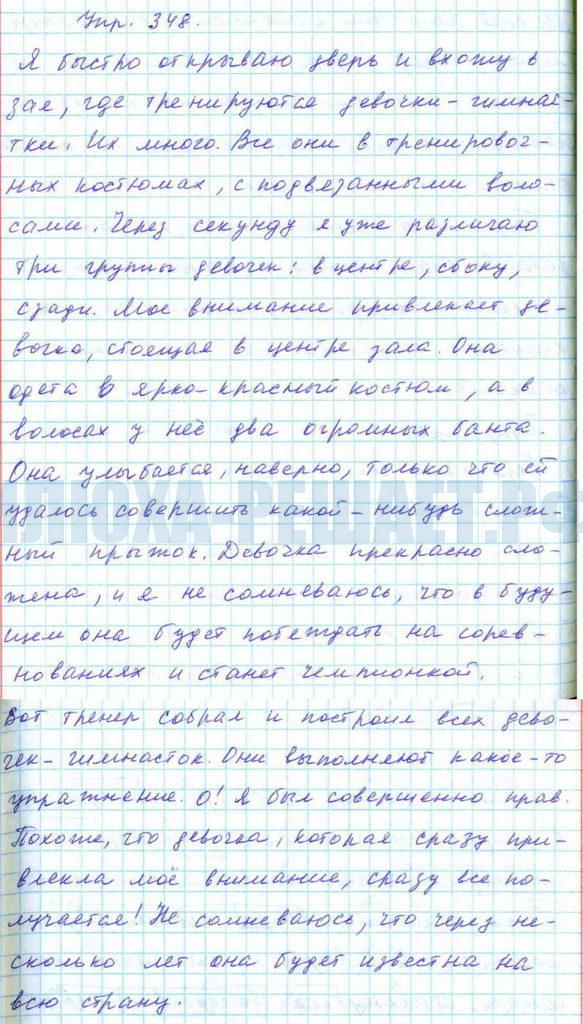 Упр. 348.
Я быстро открываю дверь и вхожу в
зал, где тренируются девочки-гимнас-
тки. Их много. Все они в тренировоч-
ных костюмах, с подвязанными воло-
сами. Через секунду я уже различаю
три группы девочек: в центре, сбоку,
сзади. Мое внимание привлекает де-
вочка, стоящая в центре зала. Она
одета в ярко-красный костюм, а в
волосах у неё два огромных банта.
Она улыбается, наверно, только что ей
удалось совершить какой-нибудь слож-
ный прыжок. Девочка прекрасно сло-
жена, и я не сомневаюсь, что в буду-
щем она будет побеждать на сорев-
нованиях и станет чемпионкой.
Вот тренер собрал и построил всех дево-
чек-гимнасток. Они выполняют какое-то
упражнение. О! Я был совершенно прав.
Похоже, что девочка, которая сразу при-
влекла моё внимание, сразу все по-
лучается! Не сомневаюсь, что через не-
сколько лет она будет известна на
всю страну.